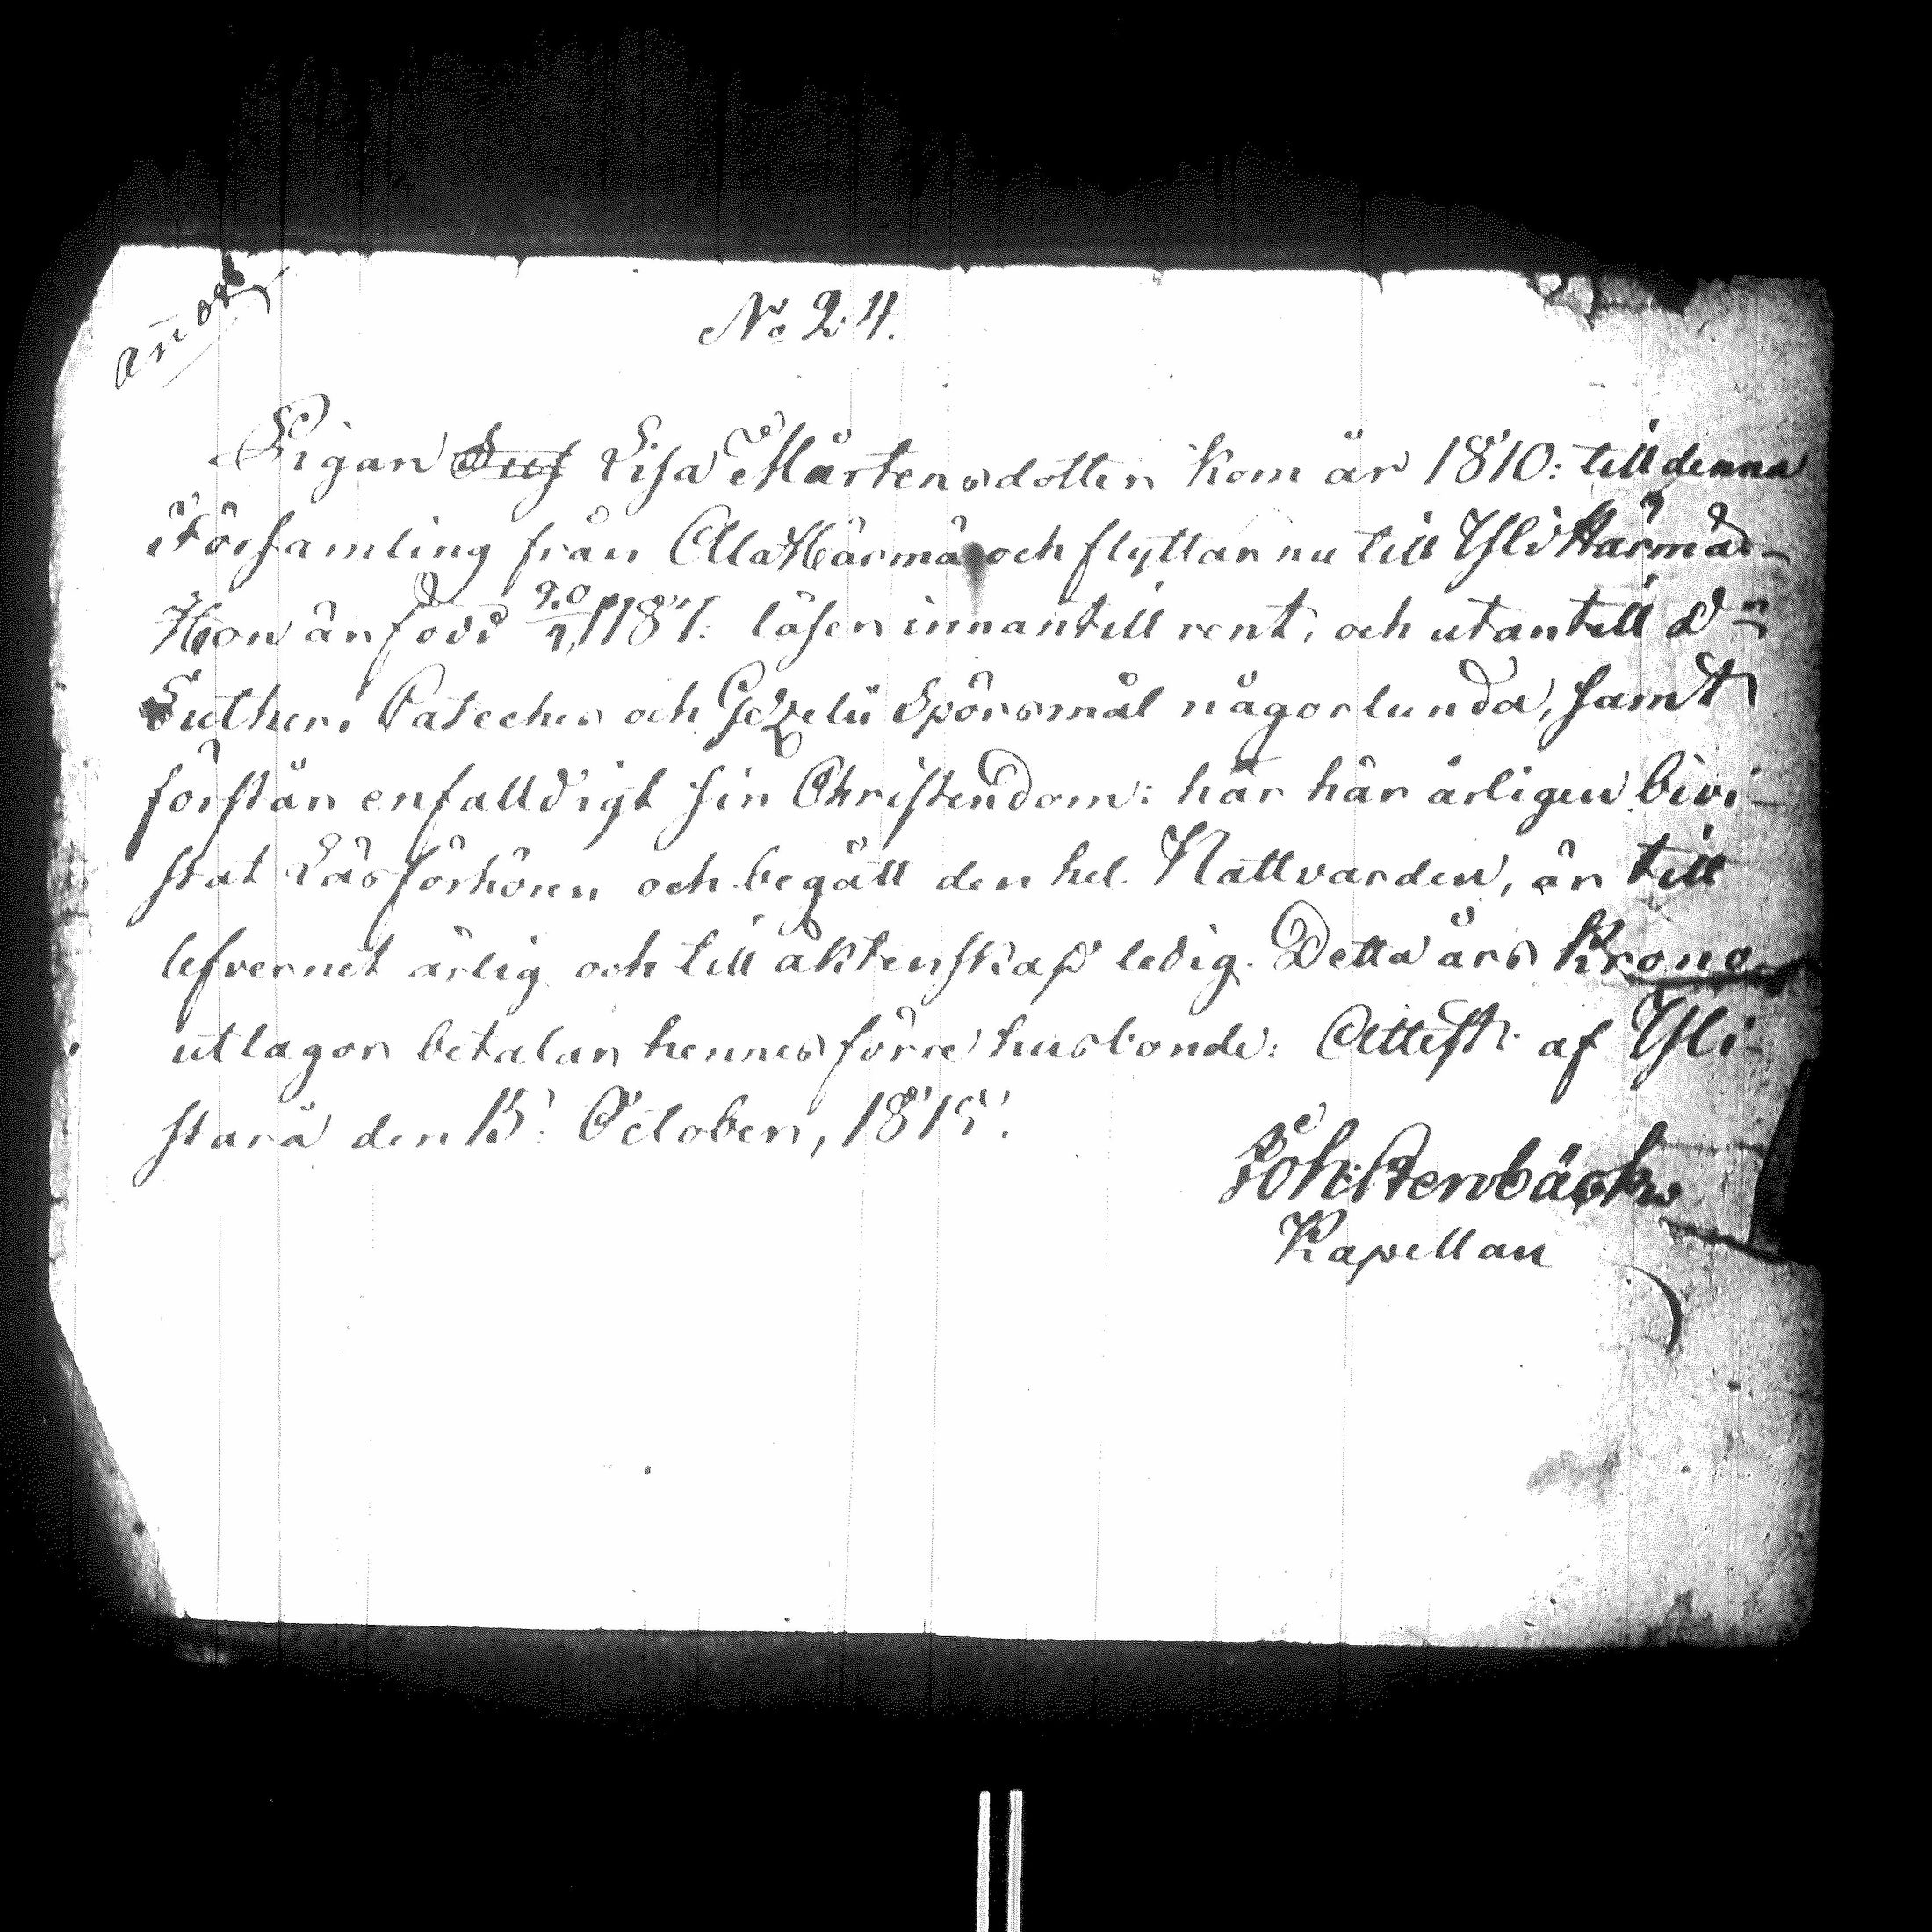 No 24.
Pigan Lisa Mårtensdotter kom år 1810: till denna
Församling från AlaHärmä och flyttar nu till YliHärmä.
Hon är född 20/9, 1787: läser innantill rent, och utantill Dn
Lutheri Cateches och Gezelii Spörsmål någorlunda, samt
förstår enfalldigt sin Christendom: har här årligen bivi-
stat Läsförhören och begått den hel. Nattvarden, är till
lefvernet ärlig och till äktenskap ledig. Detta års Krono
utlagor betalar hennes förre husbonde: Attest. af Yli-
starå den 15: October, 1815.
Joh: Stenbäck
Kapellan